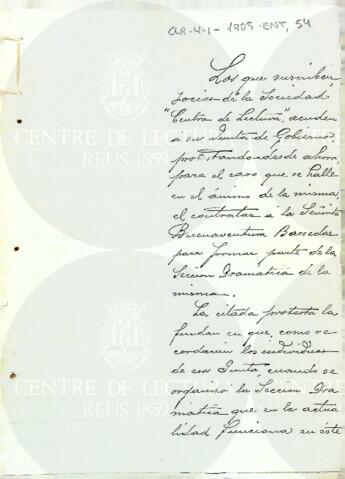 CLR-4-1-1905-ENT, 54
Los que suscriben,
socios de la Sociedad
"Centro de Lectura", acuden
a su Junta de Gobierno,
protestando desde ahora,
para el caso que se halle
en el ánimo de la misma,
el contratar a la Señorita
Buenaventura Bassedas
para formar parte de la
Sección Dramática de la
misma.
La citada protesta la
fundan en que, como re-
cordarán los individuos
de esa Junta, cuando se
organizó la Sección Dra-
mática que en la actua
lidad funciona en éste
CENTRE DE LECTURA
REUS 1859
CENTRE DE LECTURA
REUS 1859